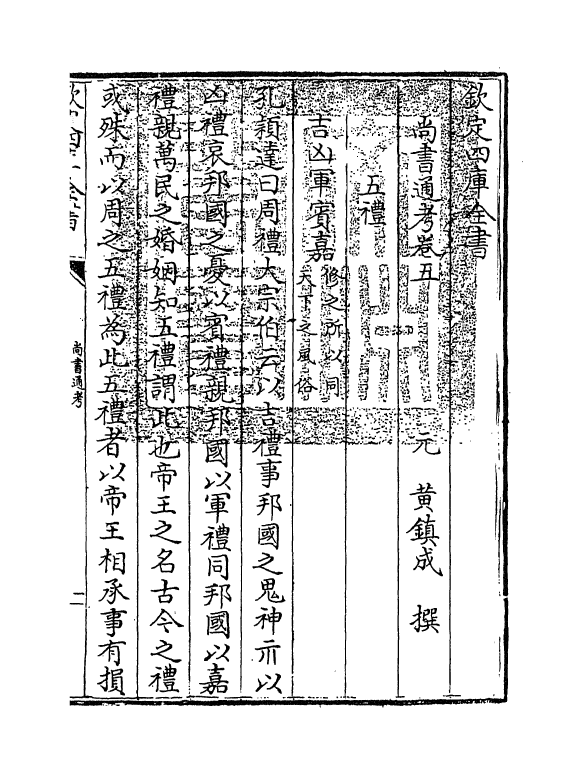 欽定四庫全書
尚書通考卷五
元 黃鎮成 撰
五禮
吉凶軍賓嘉
修之所以同
天下之風俗
孔穎達曰周禮大宗伯云以吉禮事邦國之鬼神示以
凶禮哀邦國之憂以賓禮親邦國以軍禮同邦國以嘉
禮親萬民之婚姻知五禮謂此也帝王之名古今之禮
或殊而以周之五禮為此五禮者以帝王相承事有損
尚書通考